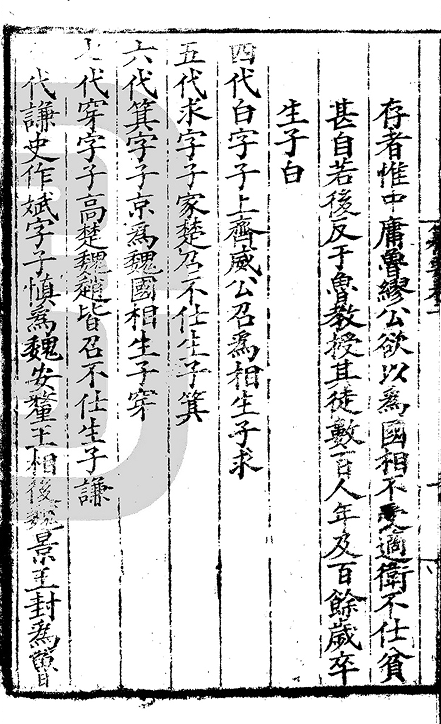 存者惟中庸魯繆公欲以為國相不受適衛不仕貧
甚自若後反于魯教授其徒數百人年及百餘歲卒
生子白
四代白字子上齊威公召為相生子求
五代求字子家楚召不仕生子箕
六代箕字子京為魏國相生子穿
七代穿字子高楚魏趙皆召不仕生子謙
代謙史作斌字子慎為魏安釐王相後魏景王封為魯